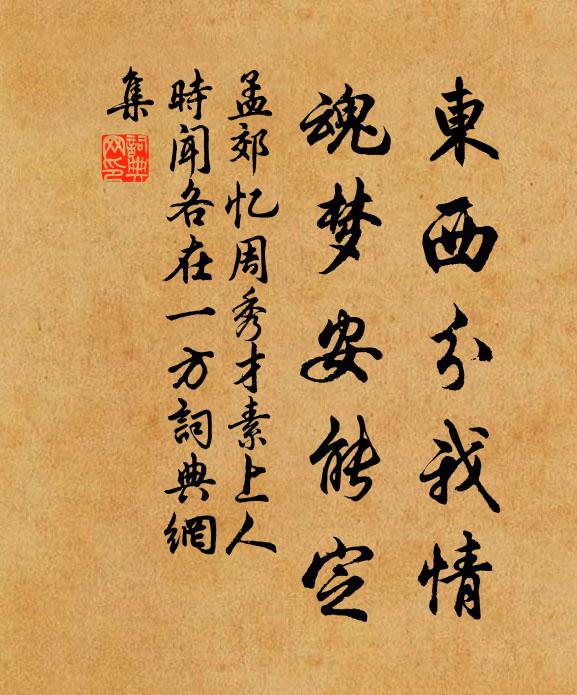 東西分我情
魂梦安能定
孟郊忆周秀才素上人
時闻各在一方詞典網
集
詞典
网印